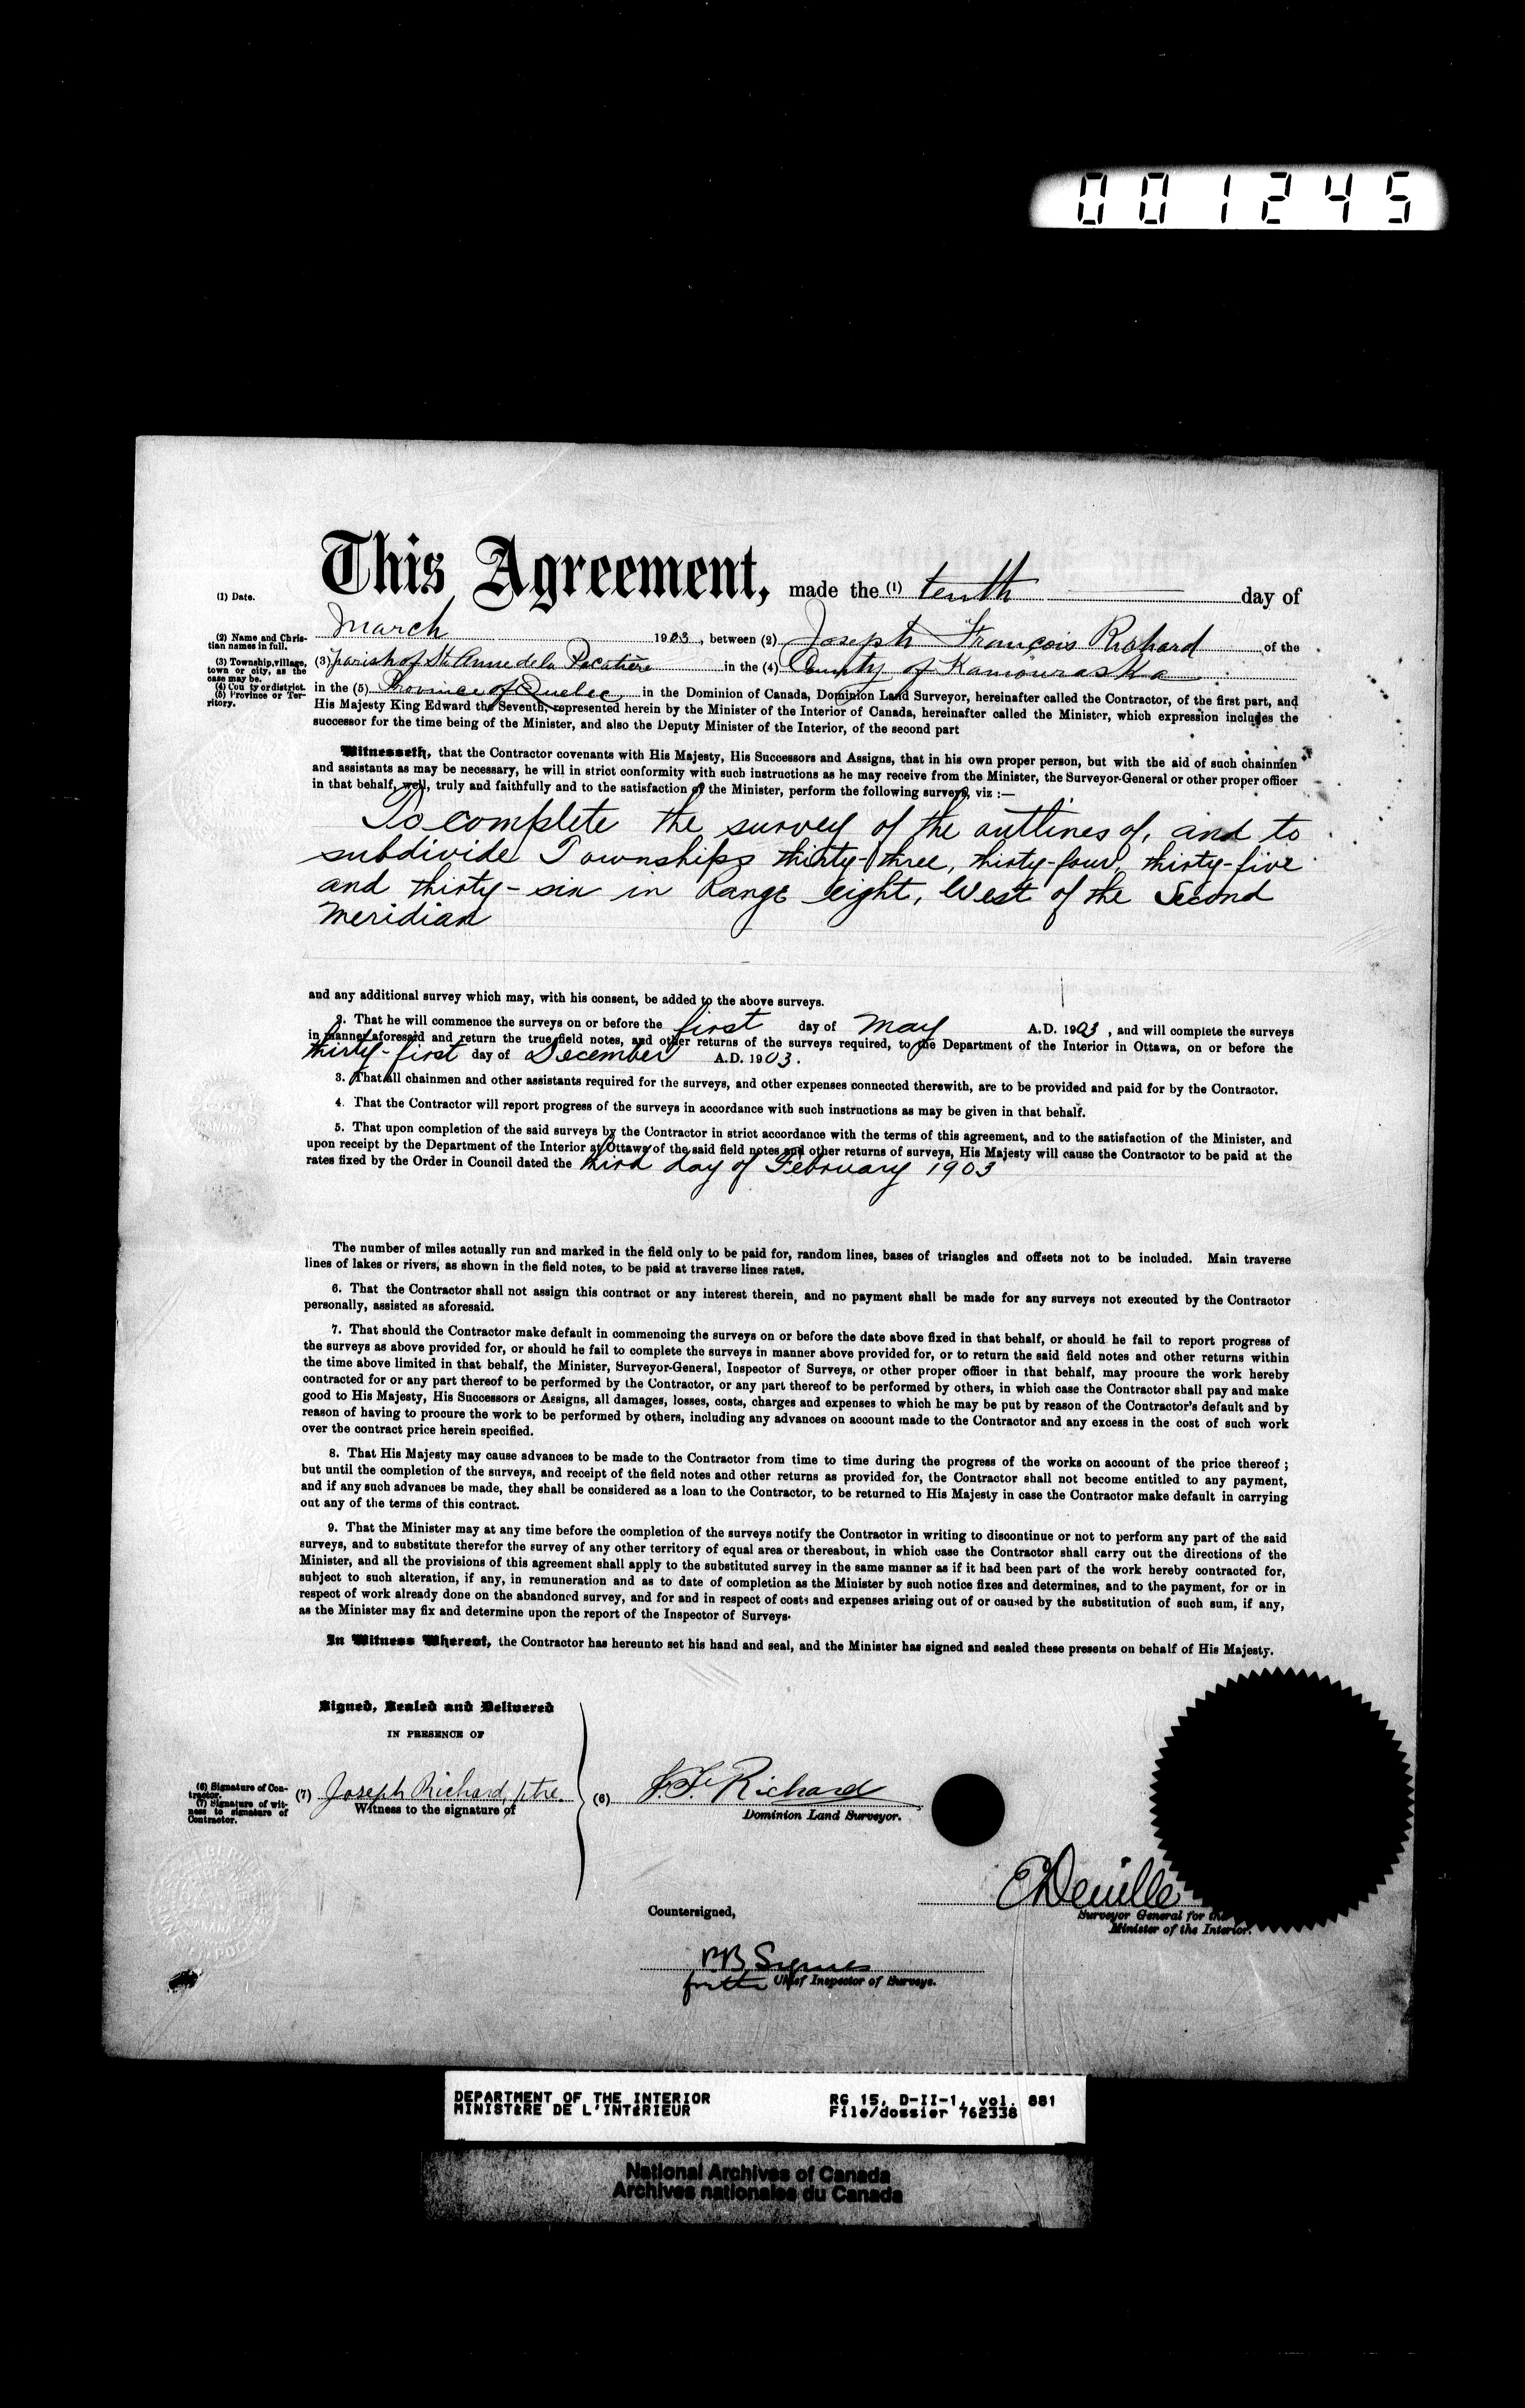 001245
This Agreement, made the (1) tenth day of
(1) Date.
March 1903, between (2) Joseph François Richard of the
(2) Name and Chris-
tian names in full.
(3) parish of St Anne de la Pocatière in the (4) County of Kamouraska
(3) Township, village,
town or city, as the
case may be.
(4) County or district.
(5) Province or Ter-
ritory.
in the (5) Province of Quebec in the Dominion of Canada, Dominion Land Surveyor, hereinafter called the Contractor, of the first part, and
His Majesty King Edward the Seventh, represented herein by the Minister of the Interior of Canada, hereinafter called the Minister, which expression includes the
successor for the time being of the Minister, and also the Deputy Minister of the Interior, of the second part
Witnesseth, that the Contractor covenants with His Majesty, His Successors and Assigns, that in his own proper person, but with the aid of such chainmen
and assistants as may be necessary, he will in strict conformity with such instructions as he may receive from the Minister, the Surveyor-General or other proper officer
in that behalf, well, truly and faithfully and to the satisfaction of the Minister, perform the following surveys, viz :—
To complete the survey of the outlines of, and to
subdivide Townships thirty-three, thirty-four, thirty-five
and thirty-six in Range eight, West of the Second
Meridian
and any additional survey which may, with his consent, be added to the above surveys.
2. That he will commence the surveys on or before the first day of May A.D. 1903, and will complete the surveys
in manner aforesaid and return the true field notes, and other returns of the surveys required, to the Department of the Interior in Ottawa, on or before the
thirty-first day of December A.D. 1903.
3. That all chainmen and other assistants required for the surveys, and other expenses connected therewith, are to be provided and paid for by the Contractor.
4. That the Contractor will report progress of the surveys in accordance with such instructions as may be given in that behalf.
5. That upon completion of the said surveys by the Contractor in strict accordance with the terms of this agreement, and to the satisfaction of the Minister, and
upon receipt by the Department of the Interior at Ottawa of the said field notes and other returns of surveys, His Majesty will cause the Contractor to be paid at the
rates fixed by the Order in Council dated the third day of February 1903
The number of miles actually run and marked in the field only to be paid for, random lines, bases of triangles and offsets not to be included. Main traverse
lines of lakes or rivers, as shown in the field notes, to be paid at traverse lines rates.
6. That the Contractor shall not assign this contract or any interest therein, and no payment shall be made for any surveys not executed by the Contractor
personally, assisted as aforesaid.
7. That should the Contractor make default in commencing the surveys on or before the date above fixed in that behalf, or should he fail to report progress of
the surveys as above provided for, or should he fail to complete the surveys in manner above provided for, or to return the said field notes and other returns within
the time above limited in that behalf, the Minister, Surveyor-General, Inspector of Surveys, or other proper officer in that behalf, may procure the work hereby
contracted for or any part thereof to be performed by the Contractor, or any part thereof to be performed by others, in which case the Contractor shall pay and make
good to His Majesty, His Successors or Assigns, all damages, losses, costs, charges and expenses to which he may be put by reason of the Contractor's default and by
reason of having to procure the work to be performed by others, including any advances on account made to the Contractor and any excess in the cost of such work
over the contract price herein specified.
8. That His Majesty may cause advances to be made to the Contractor from time to time during the progress of the works on account of the price thereof ;
but until the completion of the surveys, and receipt of the field notes and other returns as provided for, the Contractor shall not become entitled to any payment,
and if any such advances be made, they shall be considered as a loan to the Contractor, to be returned to His Majesty in case the Contractor make default in carrying
out any of the terms of this contract.
9. That the Minister may at any time before the completion of the surveys notify the Contractor in writing to discontinue or not to perform any part of the said
surveys, and to substitute therefor the survey of any other territory of equal area or thereabout, in which case the Contractor shall carry out the directions of the
Minister, and all the provisions of this agreement shall apply to the substituted survey in the same manner as if it had been part of the work hereby contracted for,
subject to such alteration, if any, in remuneration and as to date of completion as the Minister by such notice fixes and determines, and to the payment, for or in
respect of work already done on the abandoned survey, and for and in respect of costs and expenses arising out of or caused by the substitution of such sum, if any,
as the Minister may fix and determine upon the report of the Inspector of Surveys.
In Witness Whereof, the Contractor has hereunto set his hand and seal, and the Minister has signed and sealed these presents on behalf of His Majesty.
Signed, Sealed and Delivered
IN PRESENCE OF
(6) Signature of Con-
tractor.
(7) Signature of wit-
ness to signature of
Contractor.
(7) Joseph Richard, ptre.
Witness to the signature of
(6) J. F. Richard
Dominion Land Surveyor.
E Deville
Surveyor General for the
Minister of the Interior.
Countersigned,
P B Symes
for the Chief Inspector of Surveys.
DEPARTMENT OF THE INTERIOR RG 15, D-II-1, vol. 881
MINISTÈRE DE L'INTÉRIEUR File/dossier 762338
National Archives of Canada
Archives nationales du Canada